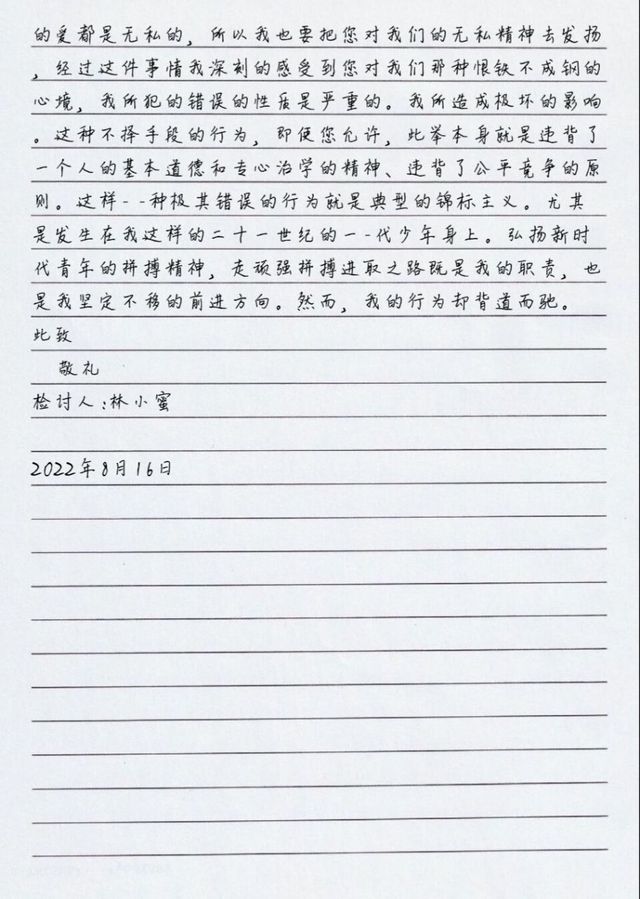 的爱都是无私的，所以我也要把您对我们的无私精神去发扬
，经过这件事情我深刻的感受到您对我们那种恨铁不成钢的
心境，我所犯的错误的性质是严重的。我所造成极坏的影响
。这种不择手段的行为，即使您允许，此举本身就是违背了
一个人的基本道德和专心治学的精神、违背了公平竞争的原
则。这样--种极其错误的行为就是典型的锦标主义。尤其
是发生在我这样的二十一世纪的一--代少年身上。弘扬新时
代青年的拼搏精神，走顽强拼搏进取之路既是我的职责，也
是我坚定不移的前进方向。然而，我的行为却背道而驰。
此致
敬礼
检讨人：林小蜜
2022年8月16日